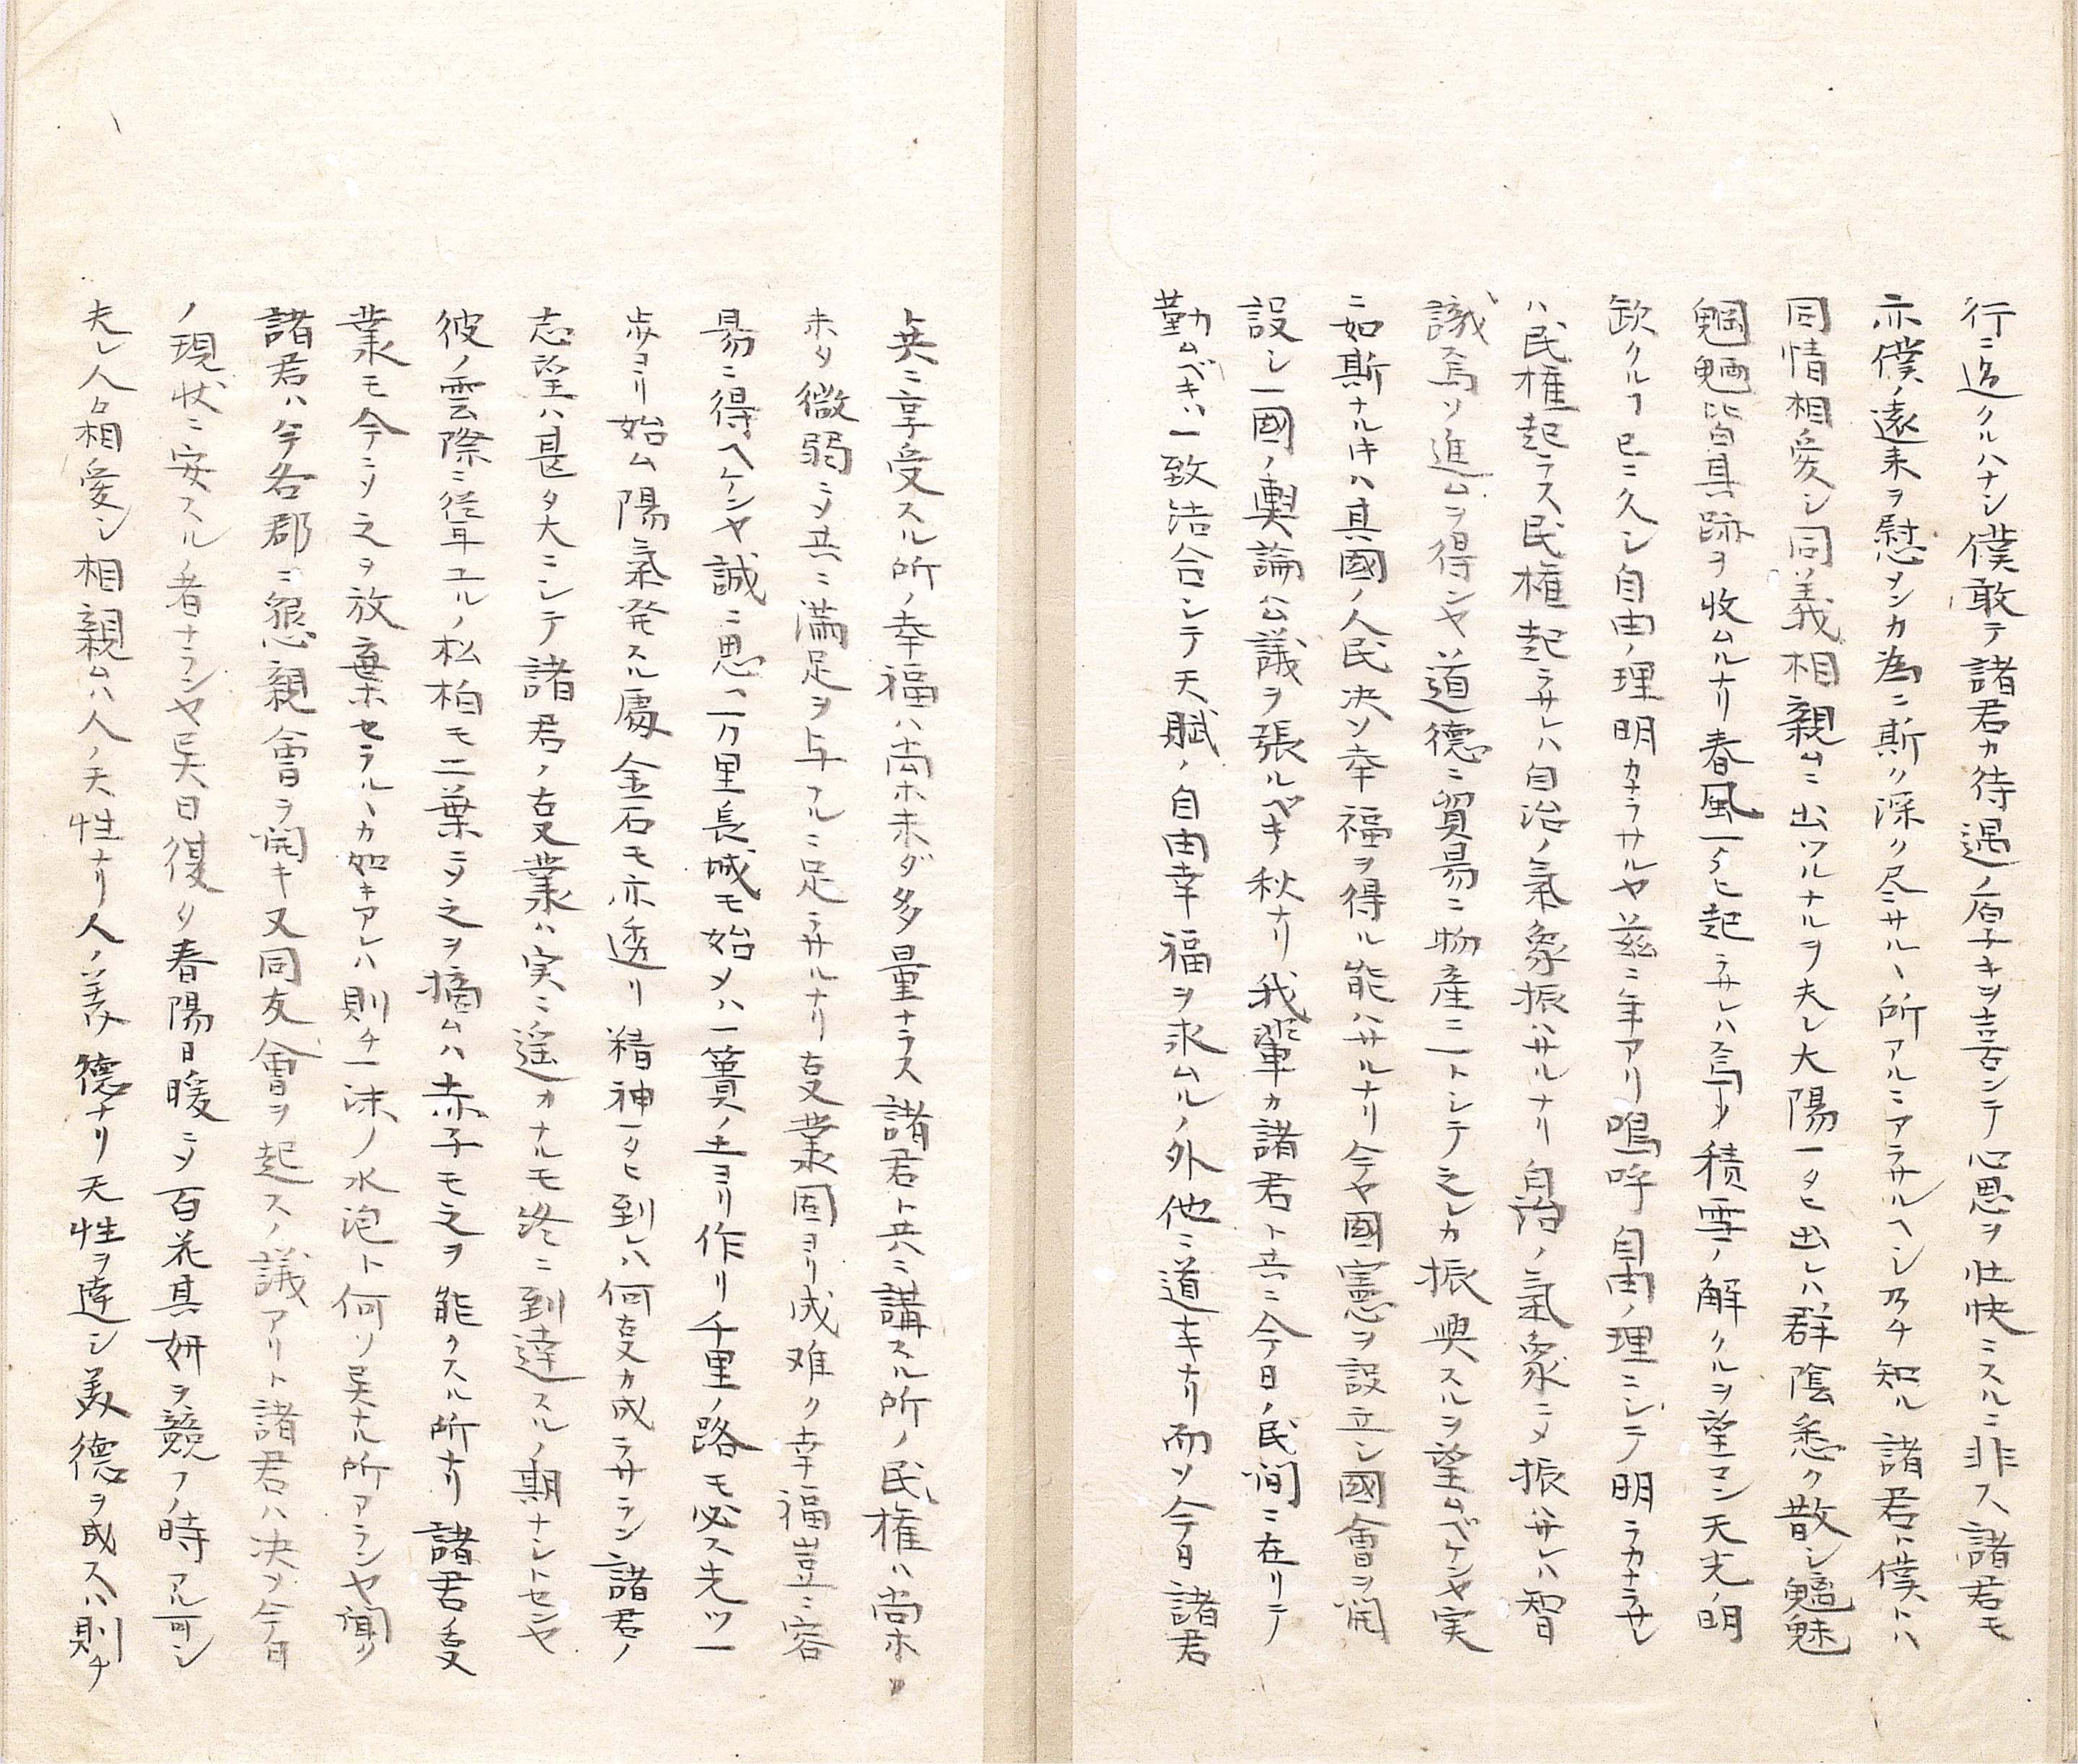 行ニ過クルハナシ僕敢テ諸君カ待遇ノ厚キヲ喜ンテ心思ヲ壮快ニスルニ非ス諸君モ
亦僕ノ遠来ヲ慰メンカ為ニ斯ク深ク尽サルヽ所アルニアラサルヘシ乃チ知ル諸君ト僕トハ
同情相愛シ同義相親ムニ出ツルナルヲ夫レ大陽一タヒ出レハ群陰悉ク散シ魑魅
魍魎皆其跡ヲ收ムルナリ春風一タヒ起ラサレハ焉ソ積雪ノ解クルヲ望マン天光ノ明
欽クルヿ已ニ久シ自由ノ理明カナラサルヤ茲ニ年アリ嗚呼自由ノ理ニシテ明ラカナラサレ
ハ民権起ラス民権起ラサレハ自治ノ氣象振ハサルナリ自治ノ氣象ニメ振ハサレハ智
識焉ソ進ムヲ得ンヤ道德ニ貿易ニ物産ニ一トシテ之レカ振興スルヲ望ムベケンヤ実
ニ如斯ナルキハ其國ノ人民决ソ幸福ヲ得ル能ハサルナリ今ヤ國憲ヲ設立シ國會ヲ開
設シ一國ノ輿論公議ヲ張ルベキ秋ナリ我輩カ諸君ト共ニ今日ノ民間ニ在リテ
勤ムベキハ一致結合シテ天賦ノ自由幸福ヲ求ムルノ外他ニ道ナキナリ而ソ今日諸君
ト共ニ享受スル所ノ幸福ハ尚ホ未ダ多量ナラス諸君ト共ニ講スル所ノ民権ハ尚ホ
未タ微弱ニメ共ニ満足ヲ与フルニ足ラサルナリ叓業固ヨリ成难ク幸福豈ニ容
昜ニ得ヘケンヤ誠ニ思ヘ一万里長城モ始メハ一簣ノ土ヨリ作リ千里ノ路モ必ス先ツ一
歩ヨリ始ム陽氣発スル處金石モ亦透リ精神一タヒ到レハ何叓カ成ラサラン諸君ノ
志望ハ甚タ大ニシテ諸君ノ叓業ハ実ニ遥カナルモ终ニ到達スルノ期ナシトセンヤ
彼ノ雲際ニ聳ユルノ松柏モ二葉ニメ之ヲ摘ムハ赤子モ之ヲ能クスル所ナリ諸君ノ叓
業モ今ニメ之ヲ放棄セラルヽカ如キアレハ則チ一沫ノ水泡ト何ソ異ナル所アランヤ聞ク
諸君ハ今各郡ニ懇親會ヲ開キ又同友會ヲ起スノ議アリト諸君ハ决メ今日
ノ現状ニ安スルノ者ナランヤ異日復タ春陽日暖ニメ百花其妍ヲ競フノ時アル可シ
夫レ人々相愛シ相親ムハ人ノ天性ナリ人ノ美德ナリ天性ヲ達シ美德ヲ成スハ則チ